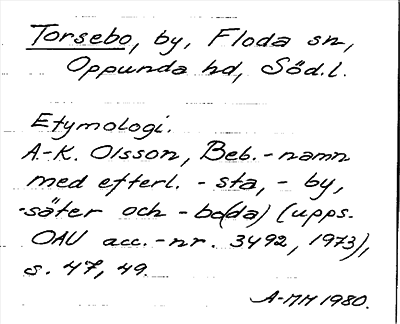 Torsebo, by, Floda sn,
Oppunda hd, Söd.l.
Etymologi.
A.-K. Olsson, Beb.-namn
med efterl. -sta, -by,
-säter och -bo(da) (upps.
OAU acc.-nr. 3492, 1973),
s. 47, 49.
A-MM 1980.